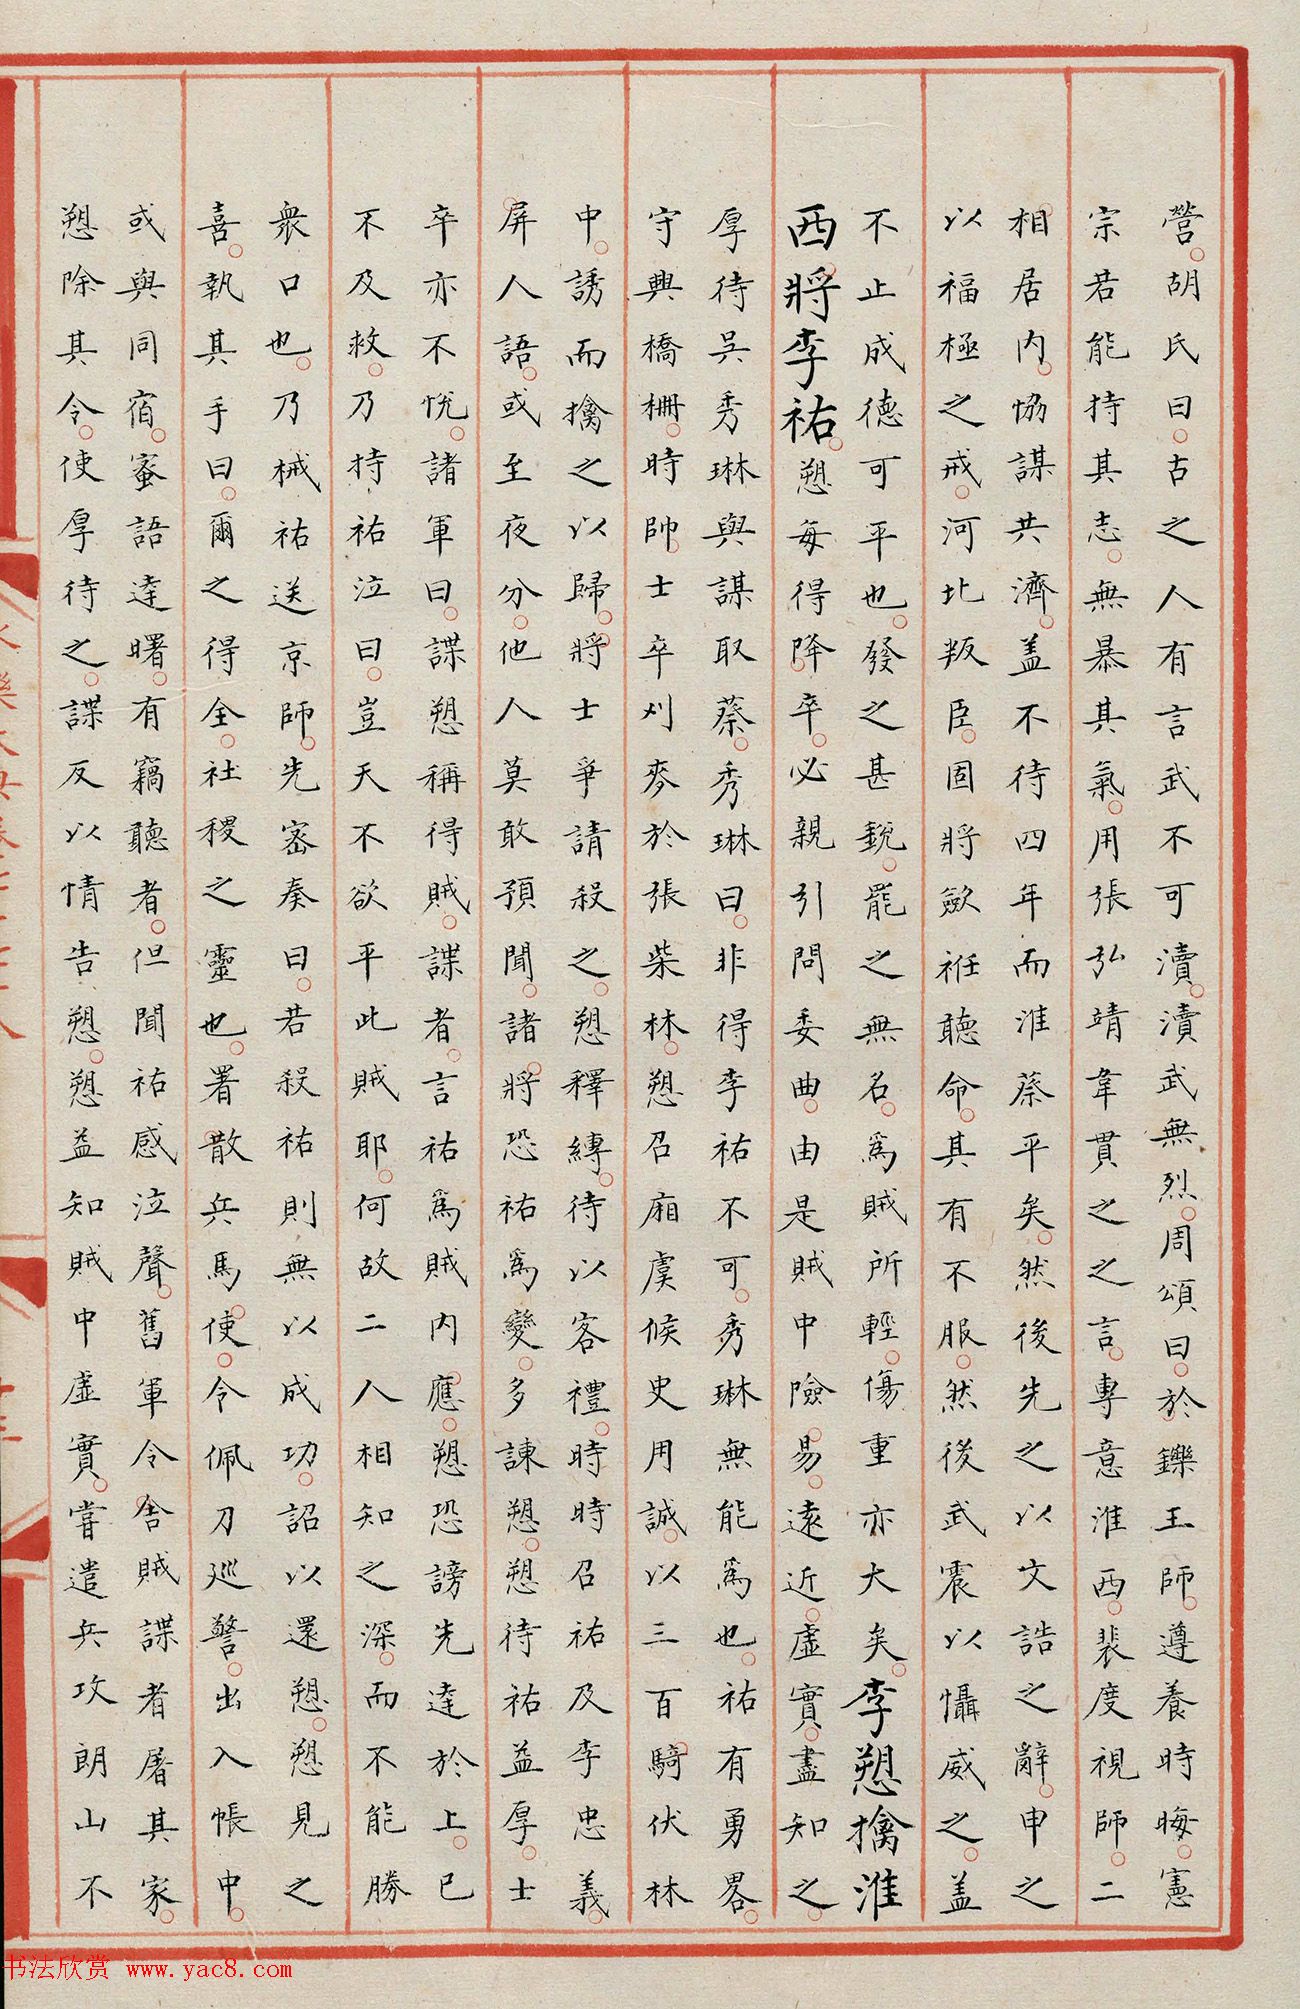 營胡氏曰古之人有言武不可瀆瀆武無烈周頌曰於鑠王師遵養時晦憲
宗若能持其志無暴其氣用張弘靖韋貫之之言專意淮西裴度視師二
相居內恊謀共濟盖不待四年而淮蔡平矣然後先之以文誥之辭申之
以福極之戒河北叛臣固將歛袵聽命其有不服然後武震以懾威之盖
不止成德可平也發之甚銳罷之無名爲賊所輕傷重亦大矣李愬擒淮
西將李祐愬每得降卒必親引問委曲由是賊中險易遠近虛實盡知之
厚待吳秀琳與謀取蔡秀琳曰非得李祐不可秀琳無能爲也祐有勇畧
守興橋柵時帥士卒刈麥於張柴林愬召廂虞候史用誠以三百騎伏林
中誘而擒之以歸將士爭請殺之愬釋縛待以客禮時時召祐及李忠義
屏人語或至夜分他人莫敢預聞諸將恐祐爲變多諫愬愬待祐益厚士
卒亦不悅諸軍曰諜愬稱得賊諜者言祐爲賊內應愬恐謗先達於上已
不及救乃持祐泣曰豈天不欲平此賊耶何故二人相知之深而不能勝
衆口也乃械祐送京師先密奏曰若殺祐則無以成功詔以還愬愬見之
喜執其手曰爾之得全社稷之靈也署散兵馬使令佩刀巡警出入帳中
或與同宿蜜語達曙有竊聽者但聞祐感泣聲舊軍令舍賊諜者屠其家
愬除其令使厚待之諜反以情告愬愬益知賊中虛實嘗遣兵攻朗山不
书法欣赏 www.yac8.com